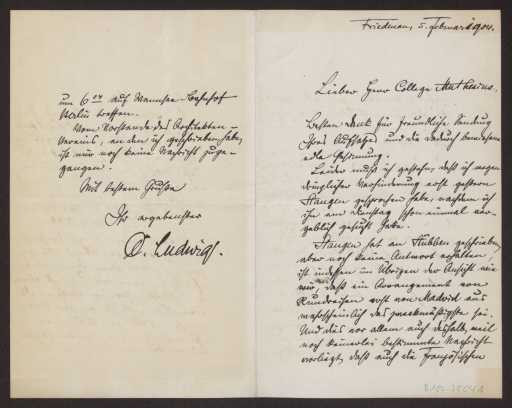 Friedenau, 5. Februar 1904.
Lieber Herr College Muthesius.
Besten Dank für freundliche Sendung
Ihres Aufsatzes und die dadurch bewiesene
edle Gesinnung.
Leider muß ich gestehen, daß ich wegen
dringlicher Verhinderung erst gestern
Stangen gesprochen habe, nachdem ich
ihn am Dienstag schon einmal ver-
geblich gesucht habe.
Stangen hat an Stübben geschrieben,
aber noch keine Antwort erhalten,
ist indessen im Übrigen der Ansicht wie
wir, daß ein Arrangement von
Rundreisen erst von Madrid aus
wahrscheinlich das zweckmäßigste sei.
Und dies vor allem auch deshalb, weil
noch keinerlei bestimmte Nachricht
vorliegt, daß auch die Französischen
um 6 Uhr auf Wannsee-Bahnhof
treffen.
Vom Vorstande des Architekten-
Vereins, an den ich geschrieben habe,
ist mir noch keine Nachricht zuge-
gangen.
Mit bestem Gruße
Ihr ergebenster
O. Ludwig.